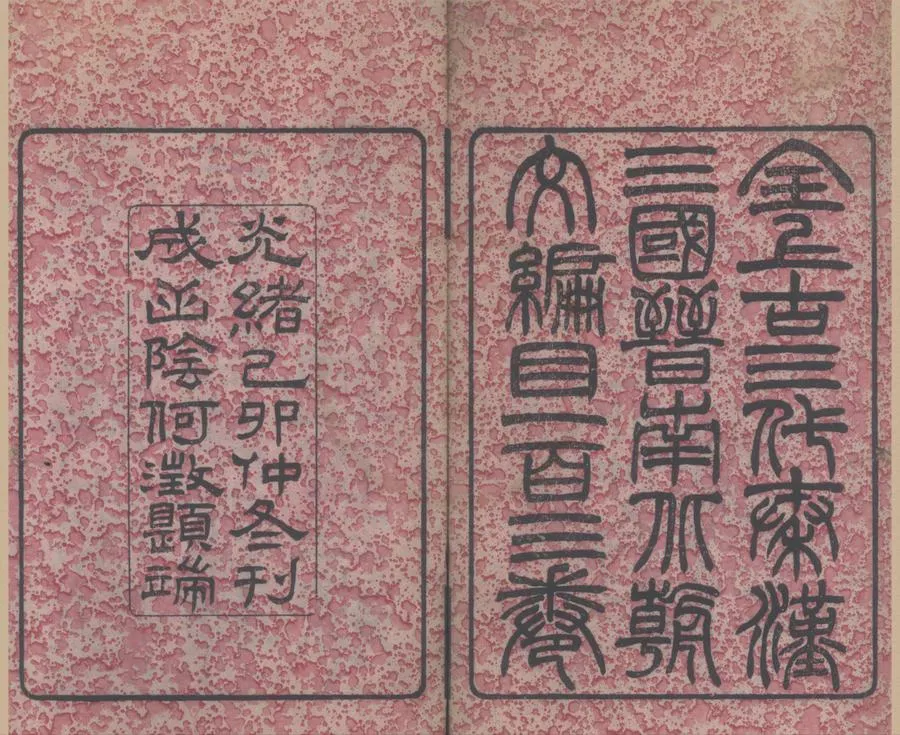 全上古三代秦漢
三國晉南北朝
文編目一百三卷
光緒己卯仲冬刊
成山陰何澂題端